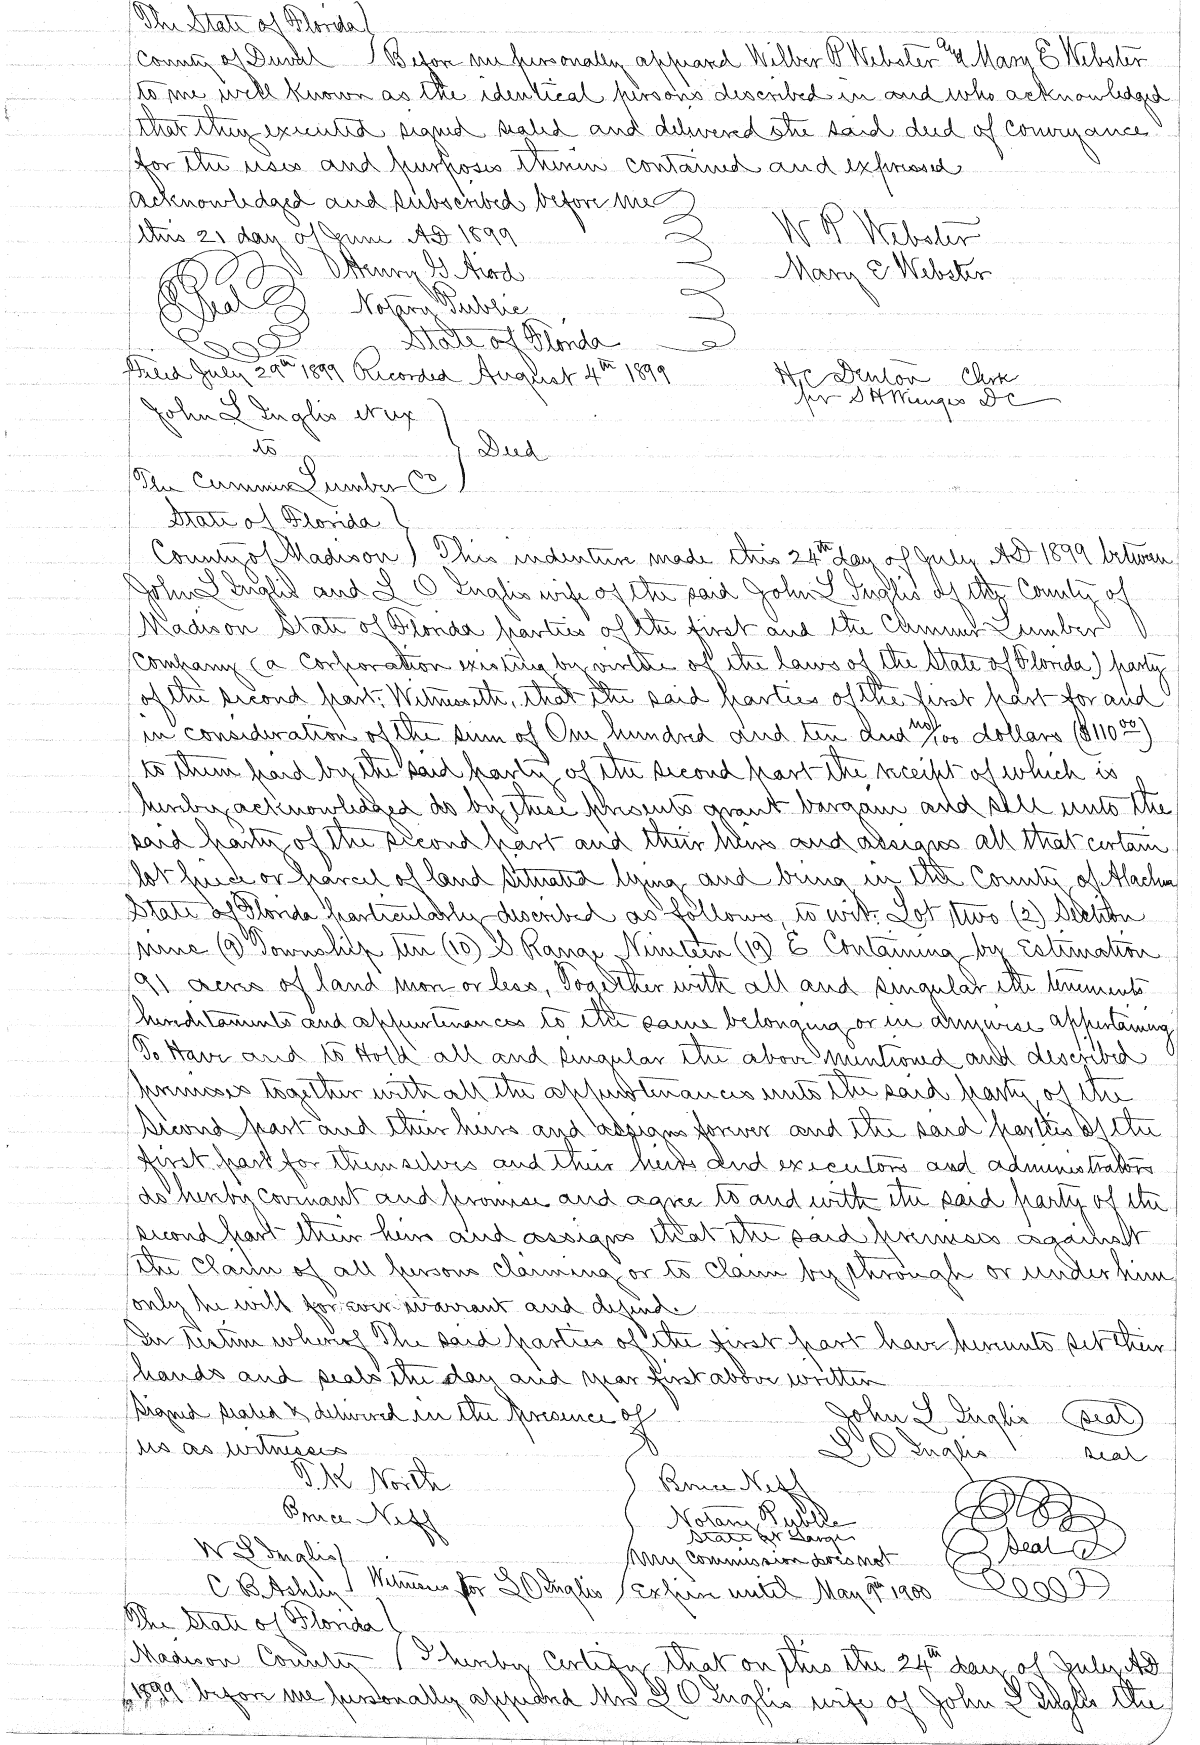 The State of Florida
County of Duval Before me personally appeard Wilber P Webster and Mary E Webster
to me well known as the identical persons described in and who acknowledged
that they executed signed sealed and delivered the said deed of conveyance
for the uses and purposes therein contained and expressed
Acknowledged and subscribed before me
this 21 day of June AD 1899
W P Webster
Henry G
Mary E Webster
Seal
Notary Public
State of Florida
Filed July 29th 1899 Recorded August 4th 1899
H C Denton Clerk
per S H Wienges DC
John L Inglis et ux
to
Deed
The Cummer Lumber Co
State of Florida
County of Madison This indenture made this 24th day of July AD 1899 between
John L Inglis and L O Inglis wife of the said John L Inglis of the County of
Madison State of Florida parties of the first and the Cummer Lumber
Company (a corporation existing by virtue of the laws of the State of Florida) party
of the second part: Witnesseth, that the said parties of the first part for and
in consideration of the sum of One hundred and ten and no/100 dollars ($110 00)
to them paid by the said party of the second part the receipt of which is
hereby acknowledged do by these presents grant bargain and sell unto the
said party of the second part and their heirs and assigns all that certain
lot piece or parcel of land situated lying and being in the County of Alachua
State of Florida particularly described as follows, to wit: Lot two (2) Section
nine (9) Township ten (10) S Range Nineteen (19) E Containing by Estimation
91 acres of land more or less, Together with all and singular the tenements
hereditaments and appurtenances to the same belonging or in anywise appertaining
To Have and to Hold all and singular the above mentioned and described
premises together with all the appurtenances unto the said party of the
second part and their heirs and assigns forever and the said parties of the
first part for themselves and their heirs and executors and administrators
do hereby covenant and promise and agree to and with the said party of the
second part their heirs and assigns that the said premises against
the claim of all persons claiming or to claim by through or under him
only he will for ever warrant and defend.
In testim whereof The said parties of the first part have hereunto set their
hands and seals the day and year first above written
Signed sealed & delivered in the presence of
John L Inglis seal
us as witnesses
L O Inglis seal
T. K North
Bruce Neff
Bruce Neff
Notary Public
State at Large
Seal
W L Inglis
My commission does not
C B Ashley Witness for L O Inglis Expire until May 9th 1900
The State of Florida
Madison County I hereby certify that on this the 24th day of July AD
1899 before me personally appeard Mrs L O Inglis wife of John L Inglis the